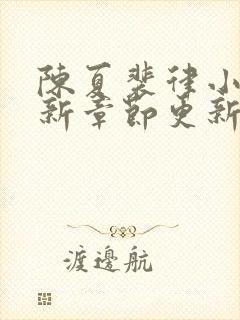 陳夏裴律小
新章節更新
渡邊航